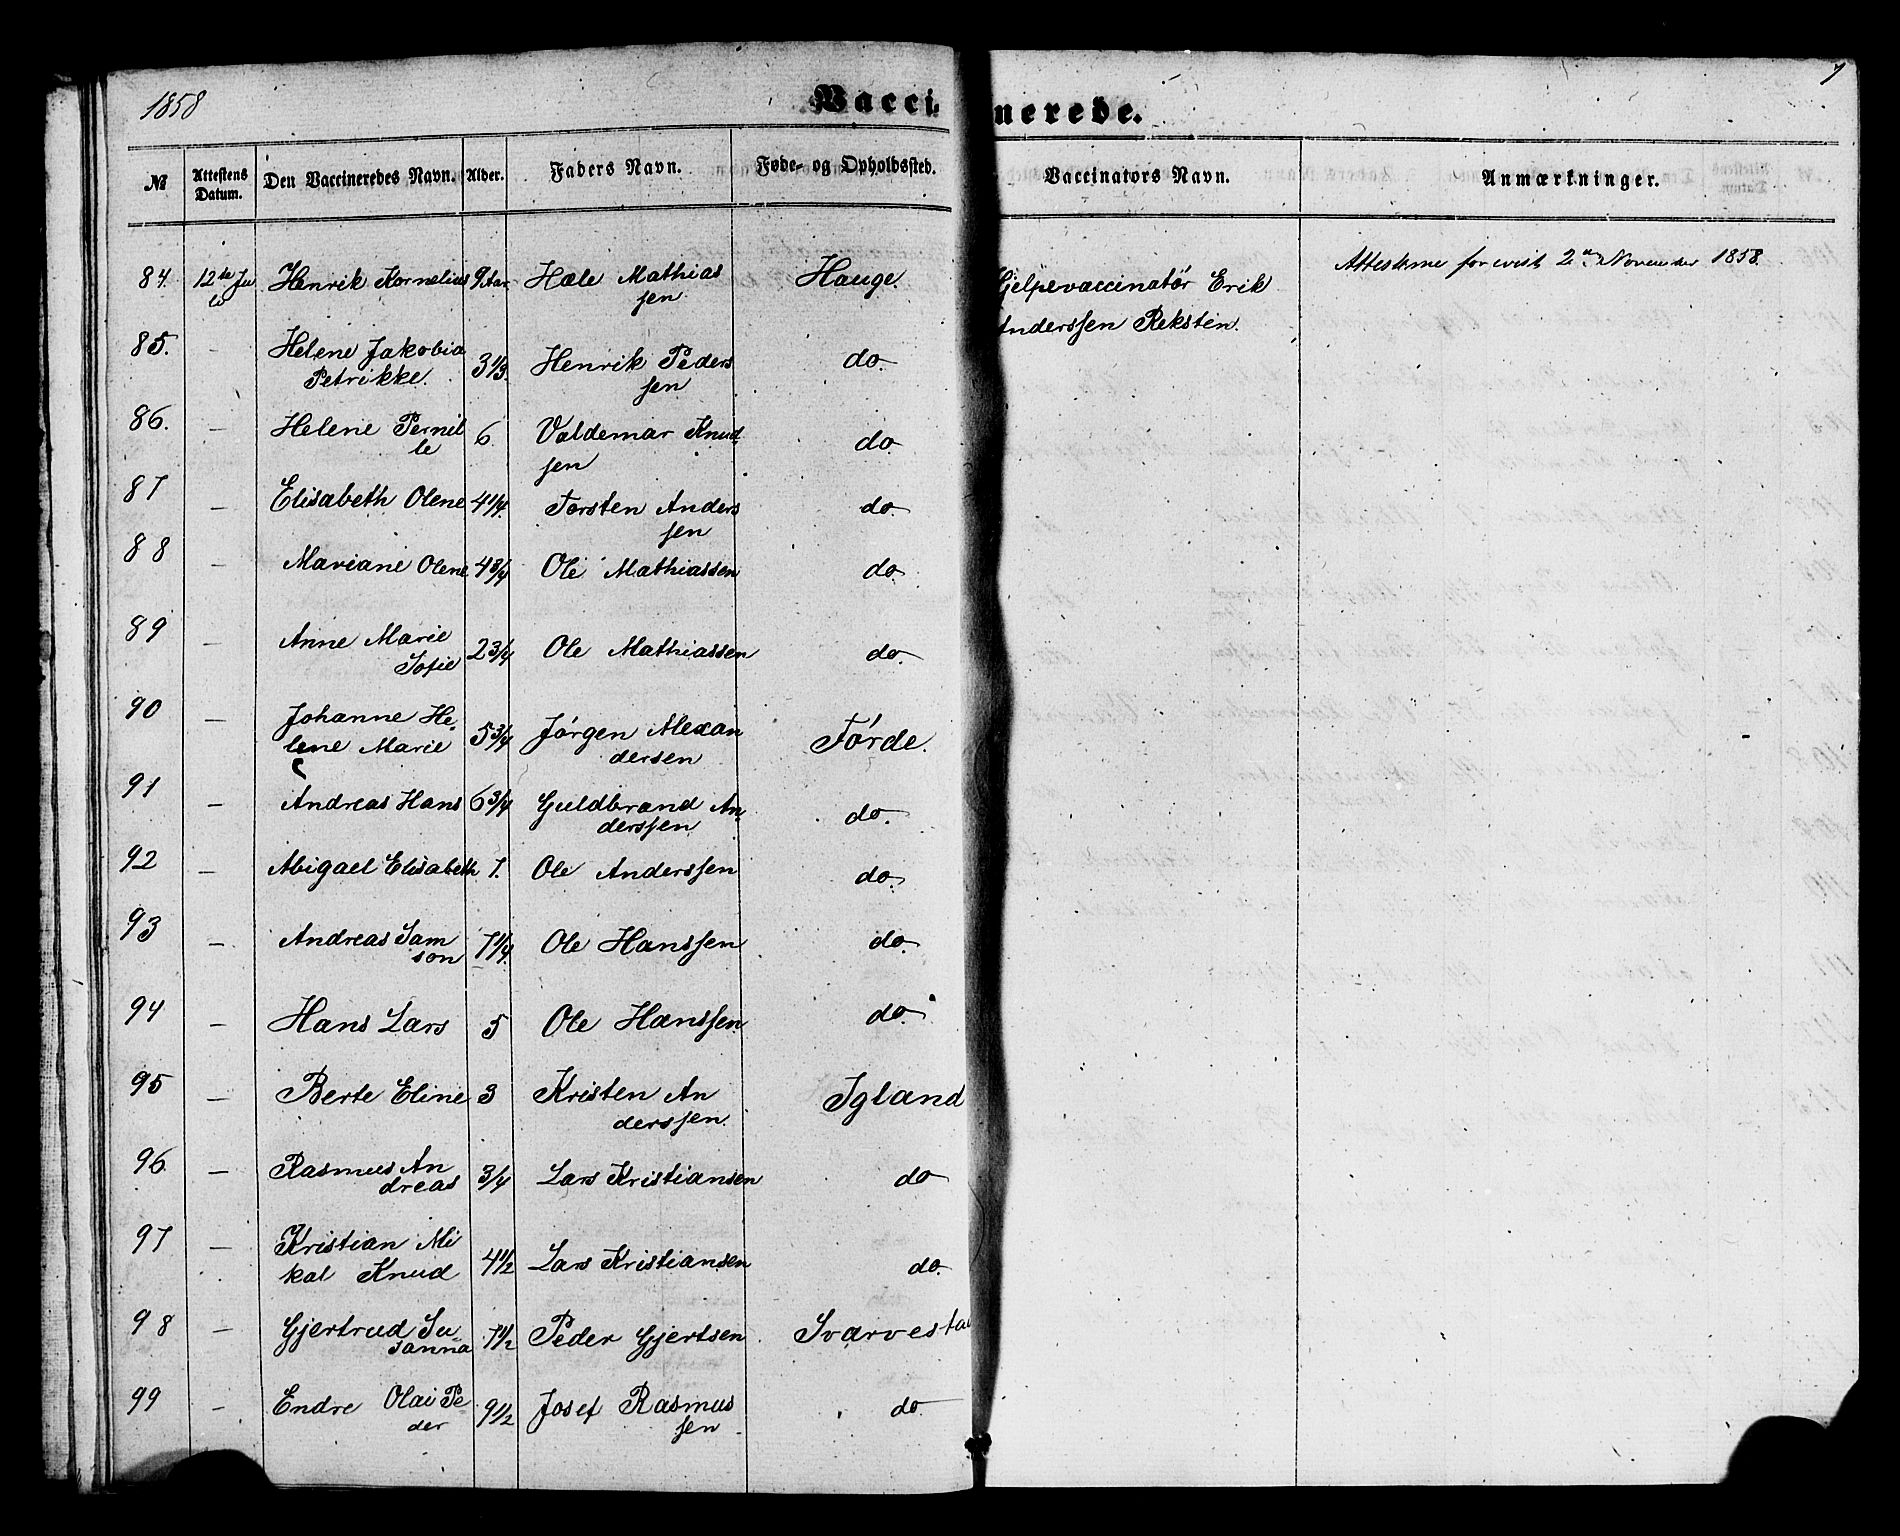 1858
7
Vaccinerede.
№ Attestens Datum. Den Vaccineredes Navn. Alder. Faders Navn. Føde- og Opholdssted. Vaccinators Navn. Anmærkninger.
84. 12te Juli Henrik Kornelius 9 aar. Hæle Mathiassen Hauge. Hjelpevaccinatör Erik Anderssen Reksten. Attesterne forevist 2den November 1858.
85. — Helene Jakobia Petrikke. 3 1/3. Henrik Pederssen do.
86. — Helene Pernille 6. Valdemar Knudsen do
87 — Elisabeth Olene 4 1/4. Torsten Anderssen do.
88 — Mariane Olene 4 3/4 Ole Mathiassen do
89 — Anne Marie Sofie 2 3/4 Ole Mathiassen do.
90 — Johanne Helene Marie 5 3/4 Jörgen Alexandersen Förde.
91 — Andreas Hans 6 3/4 Guldbrand Anderssen do.
92 — Abigael Elisabeth 1. Ole Anderssen do.
93 — Andreas Samson 7 1/4. Ole Hanssen do.
94 — Hans Lars 5 Ole Hanssen do.
95 — Berte Eline 3 Kristen Anderssen. Igland
96. — Rasmus Andreas 3/4 Lars Kristiansen do
97 — Kristian Mikal Knud 4 1/2 Lars Kristiansen do.
98 — Gjertrud Susanna 7 1/2 Peder Gjertsen Svarvestad
99 — Endre Olai Peder 9 1/2 Josef Rasmussen do